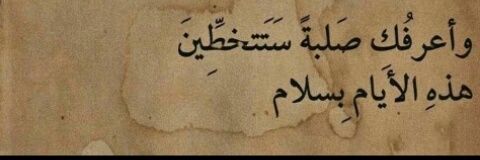 وأعرفُك صَلبةً سَتَتخطِّينَ
هذهِ الأَيام بِسلام